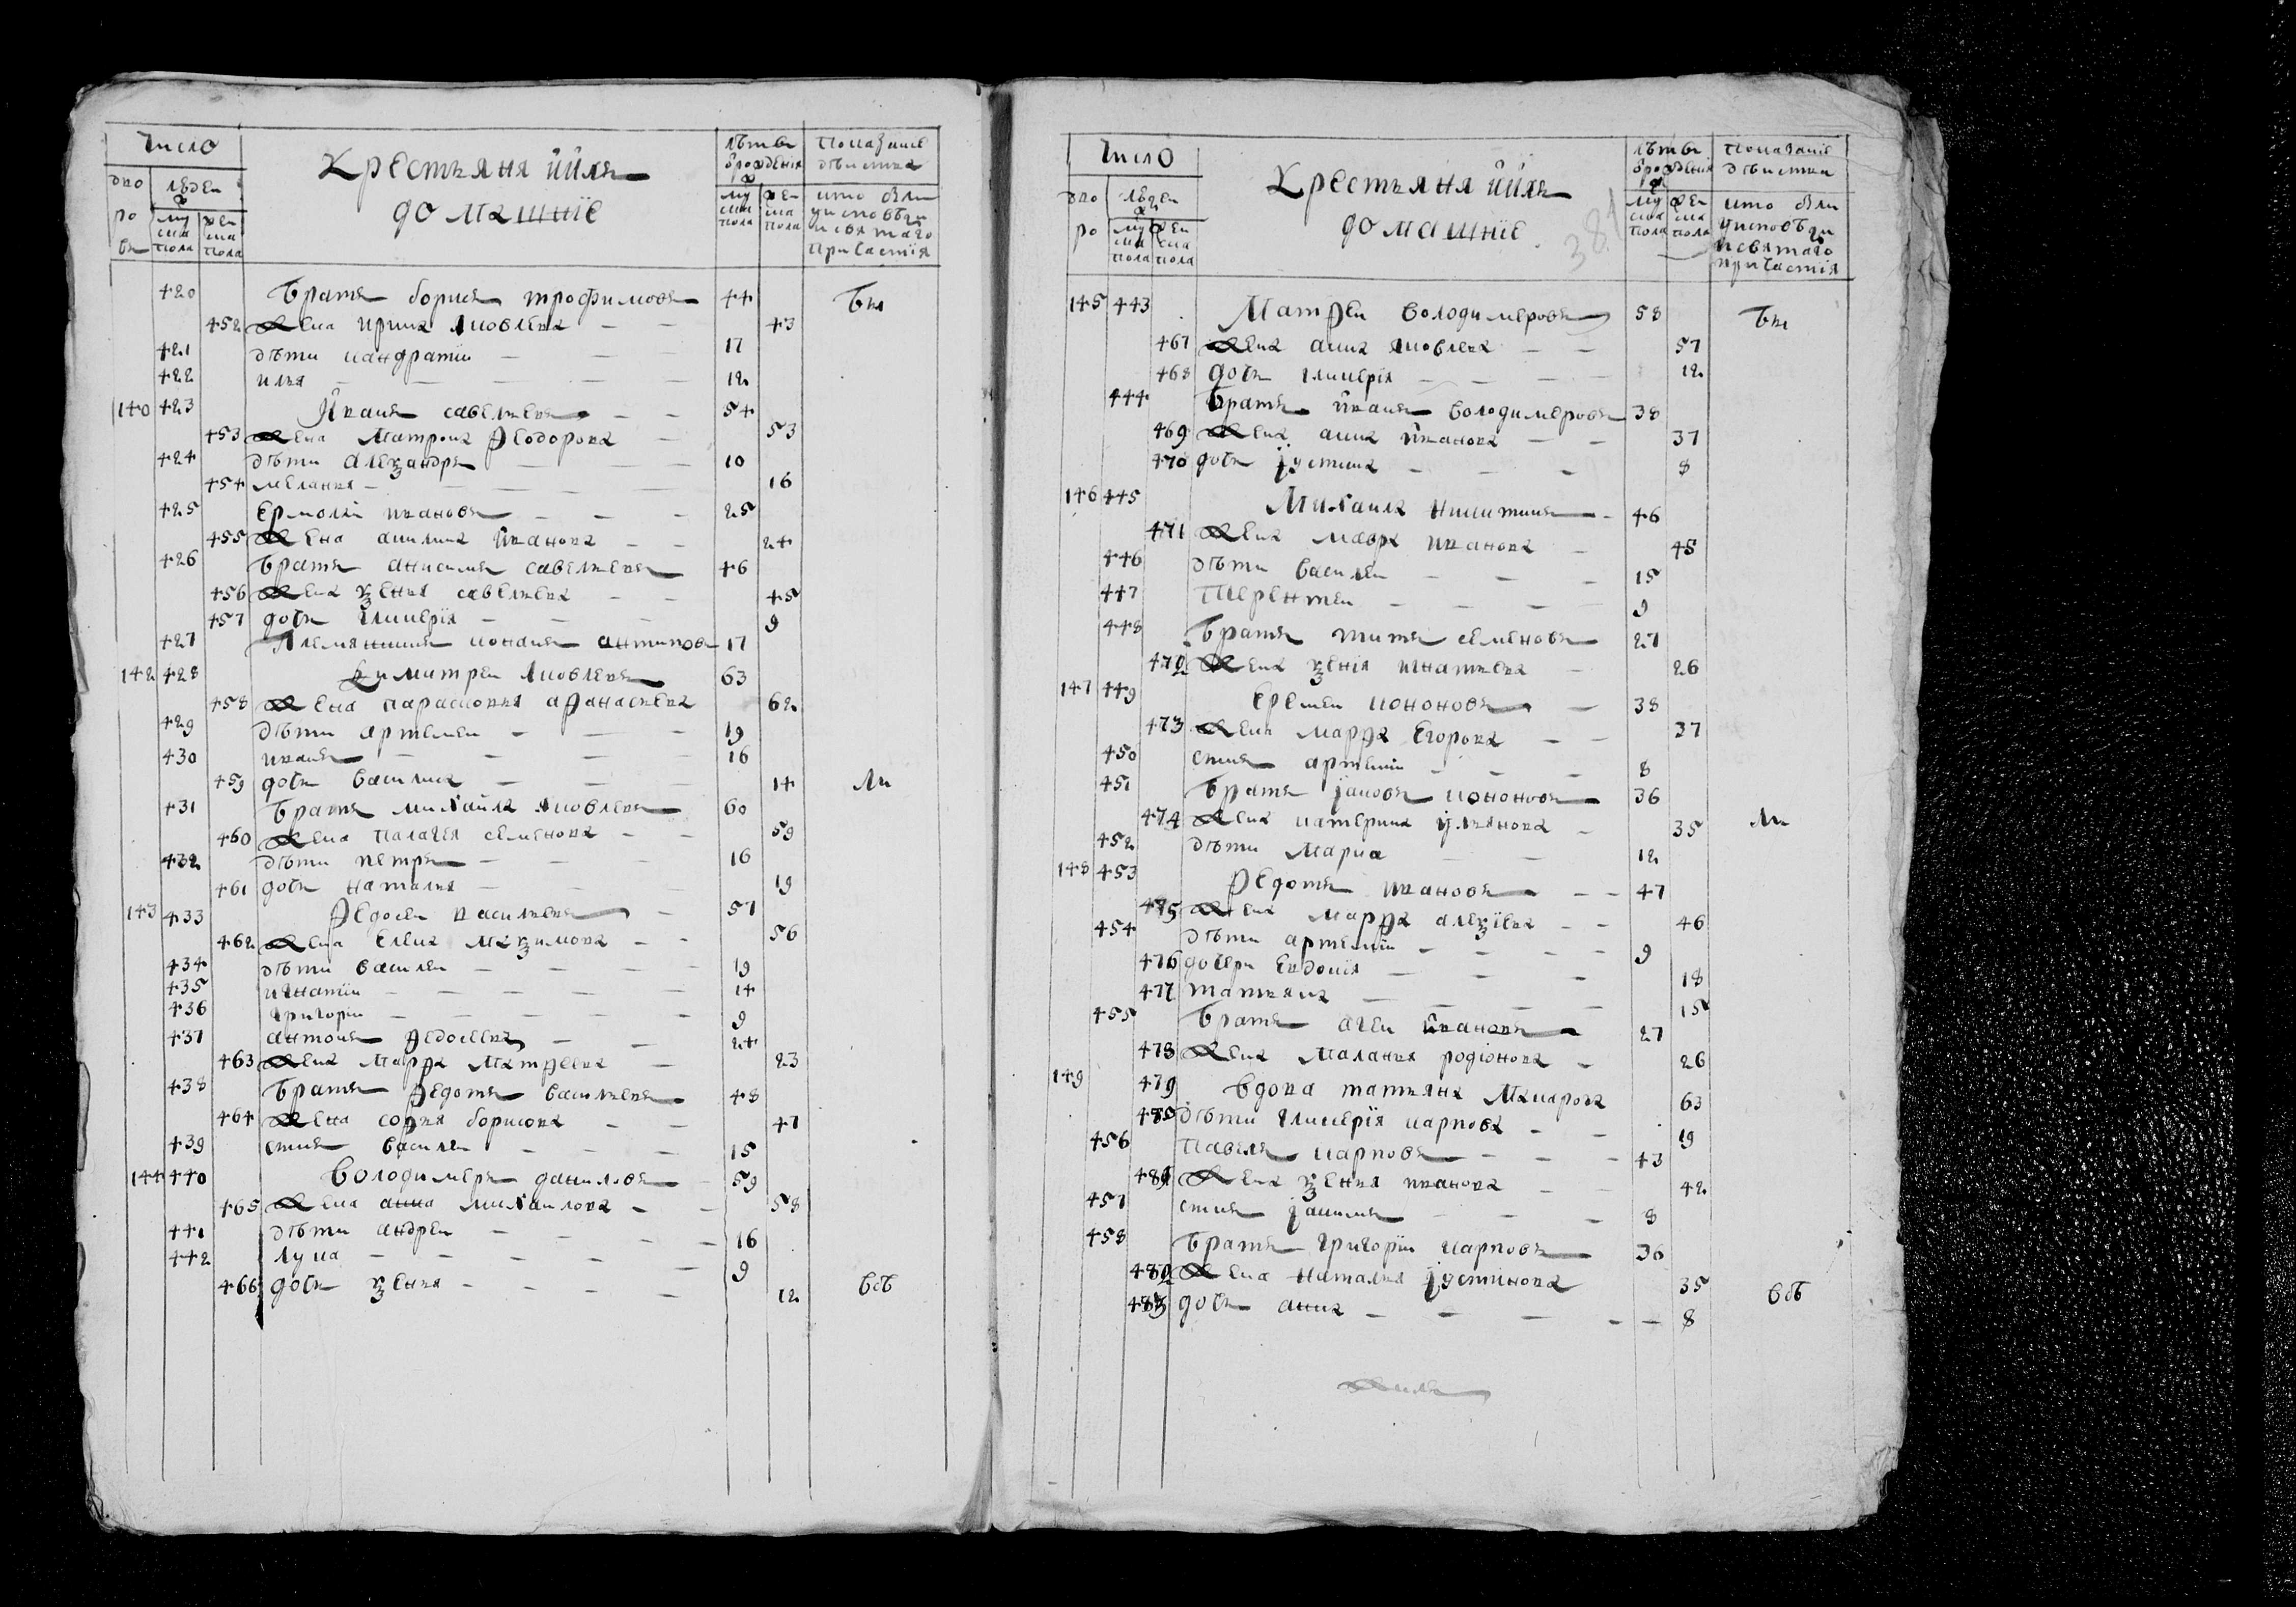 Число
Крестьяня ийхъ
домашние
лѣтъ
ѿ рождения
Показание
дѣиства
дво
ро
въ
людеи
му
ска
пола
жен
ска
пола
му
ска
пола
жен
ска
пола
кто были
у исповѣди
и святаго
причастия
420 Братъ борисъ трофимовъ 44 Бы
452 Жена ирина яковлева 43
421 дѣти кандратии 17
422 илья 12
140 423 Иванъ савельевъ 54
453 Жена Матрона Ѳеодорова 53
424 дѣти алеѯандръ 10
454 меланья 16
425 Ермолаи ивановъ 25
455 Жена акилина Иванова 24
426 Братъ анисимъ савельевъ 46
456 Жена ѯенья савельева 45
457 дочь гликерия 9
427 Племянникъ конанъ антиповъ 17
142 428 Димитреи Яковлевъ 63
458 Жена парасковья аѳанасьева 62
429 дѣти артемеи 19
430 иванъ 16
459 дочь василиса 14 ли
431 Братъ михаила яковлевъ 60
460 Жена палагея семенова 59
432 дѣти петръ 16
461 дочь наталья 19
143 433 Ѳедосеи васильевъ 57
462 Жена елена маѯимова 56
434 дѣти василеи 19
435 игнатии 14
436 григореи 9
437 антонъ Ѳедосеевъ 24
463 Жена марѳа матѳеева 23
438 Братъ Ѳедотъ васильевъ 48
464 Жена софья борисова 47
439 сынъ василеи 15
144 440 Володимеръ даниловъ 59
465 Жена анна михаилова 58
441 дѣти андреи 16
442 лука 9
466 дочь ѯенья 12 всѣ
Число
Крестьяня ийхъ
домашние
381
лѣтъ
ѿ рождения
Показание
дѣиства
дво
ро
людеи
му
ска
пола
жен
ска
пола
му
ска
пола
жен
ска
пола
кто были
у исповѣди
и святаго
причастия
145 443 Матѳеи володимеровъ 58 Бы
467 Жена анна яковлева 57
468 дочь гликерия 12
444 Братъ Иванъ володимеровъ 38
469 Жена анна Иванова 37
470 дочь іустина 8
146 445 Михаила никитинъ 46
471 Жена мавра иванова 45
446 дѣти василеи 15
447 Терентеи 9
448 Братъ титъ семеновъ 27
472 Жена ѯения игнатьева 26
147 449 Еремеи кононовъ 38
473 Жена марѳа Егорова 37
450 сынъ артемии 8
451 Братъ іаковъ кононовъ 36
474 Жена катерина ульянова 35 ли
452 дѣти марка 12
148 453 Ѳедотъ ивановъ 47
475 Жена марѳа алеѯиева 46
454 дѣти артемии 9
476 дочери Евдокия 18
477 татьяна 15
455 Братъ агеи Ивановъ 27
478 Жена маланья родионова 26
149 479 вдова татьяна макарова 63
480 дѣти гликерия карпова 19
456 павелъ карповъ 43
481 Жена ѯенья иванова 42
457 сынъ іакимъ 8
458 Братъ григории карповъ 36
482 Жена наталья іустинова 35
483 дочь анна 8 всѣ